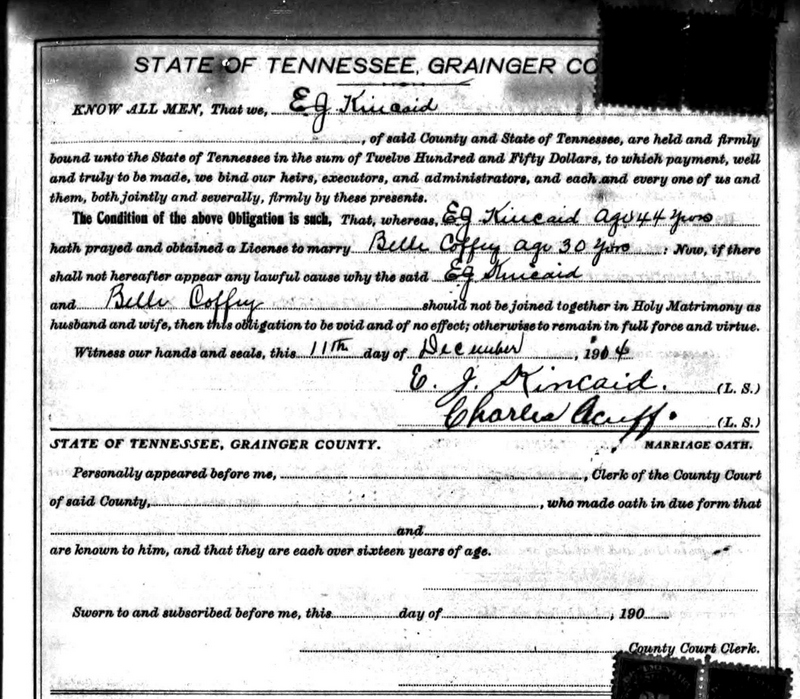 STATE OF TENNESSEE, GRAINGER CO
KNOW ALL MEN, That we, E J Kincaid
, of said County and State of Tennessee, are held and firmly
bound unto the State of Tennessee in the sum of Twelve Hundred and Fifty Dollars, to which payment, well
and truly to be made, we bind our heirs, executors, and administrators, and each and every one of us and
them, both jointly and severally, firmly by these presents.
The Condition of the above Obligation is such, That, whereas, E J Kincaid Age 44 years
hath prayed and obtained a License to marry Belle Coffey age 30 years : Now, if there
shall not hereafter appear any lawful cause why the said E J Kincaid
and Belle Coffey should not be joined together in Holy Matrimony as
husband and wife, then this obligation to be void and of no effect; otherwise to remain in full force and virtue.
Witness our hands and seals, this 11th day of December , 1904
E. J. Kincaid. (L. S.)
Charles Acuff. (L. S.)
STATE OF TENNESSEE, GRAINGER COUNTY. MARRIAGE OATH.
Personally appeared before me, , Clerk of the County Court
of said County, , who made oath in due form that
and
are known to him, and that they are each over sixteen years of age.
Sworn to and subscribed before me, this day of , 190
County Court Clerk.